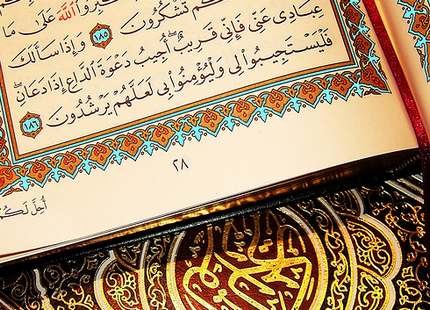 كَبِّرُوا اللَّهَ عَلَى مَا
كُمْ تَشْكُرُونَ ١٨٥ وَإِذَا سَأَلَكَ
عِبَادِى عَنِّى فَإِنِّى قَرِيبٌ أُجِيبُ دَعْوَةَ الدَّاعِ إِذَا دَعَانِ
فَلْيَسْتَجِيبُوا لِى وَلْيُؤْمِنُوا بِى لَعَلَّهُمْ يَرْشُدُونَ ١٨٦
٢٨
أُحِلَّ لَكُمْ